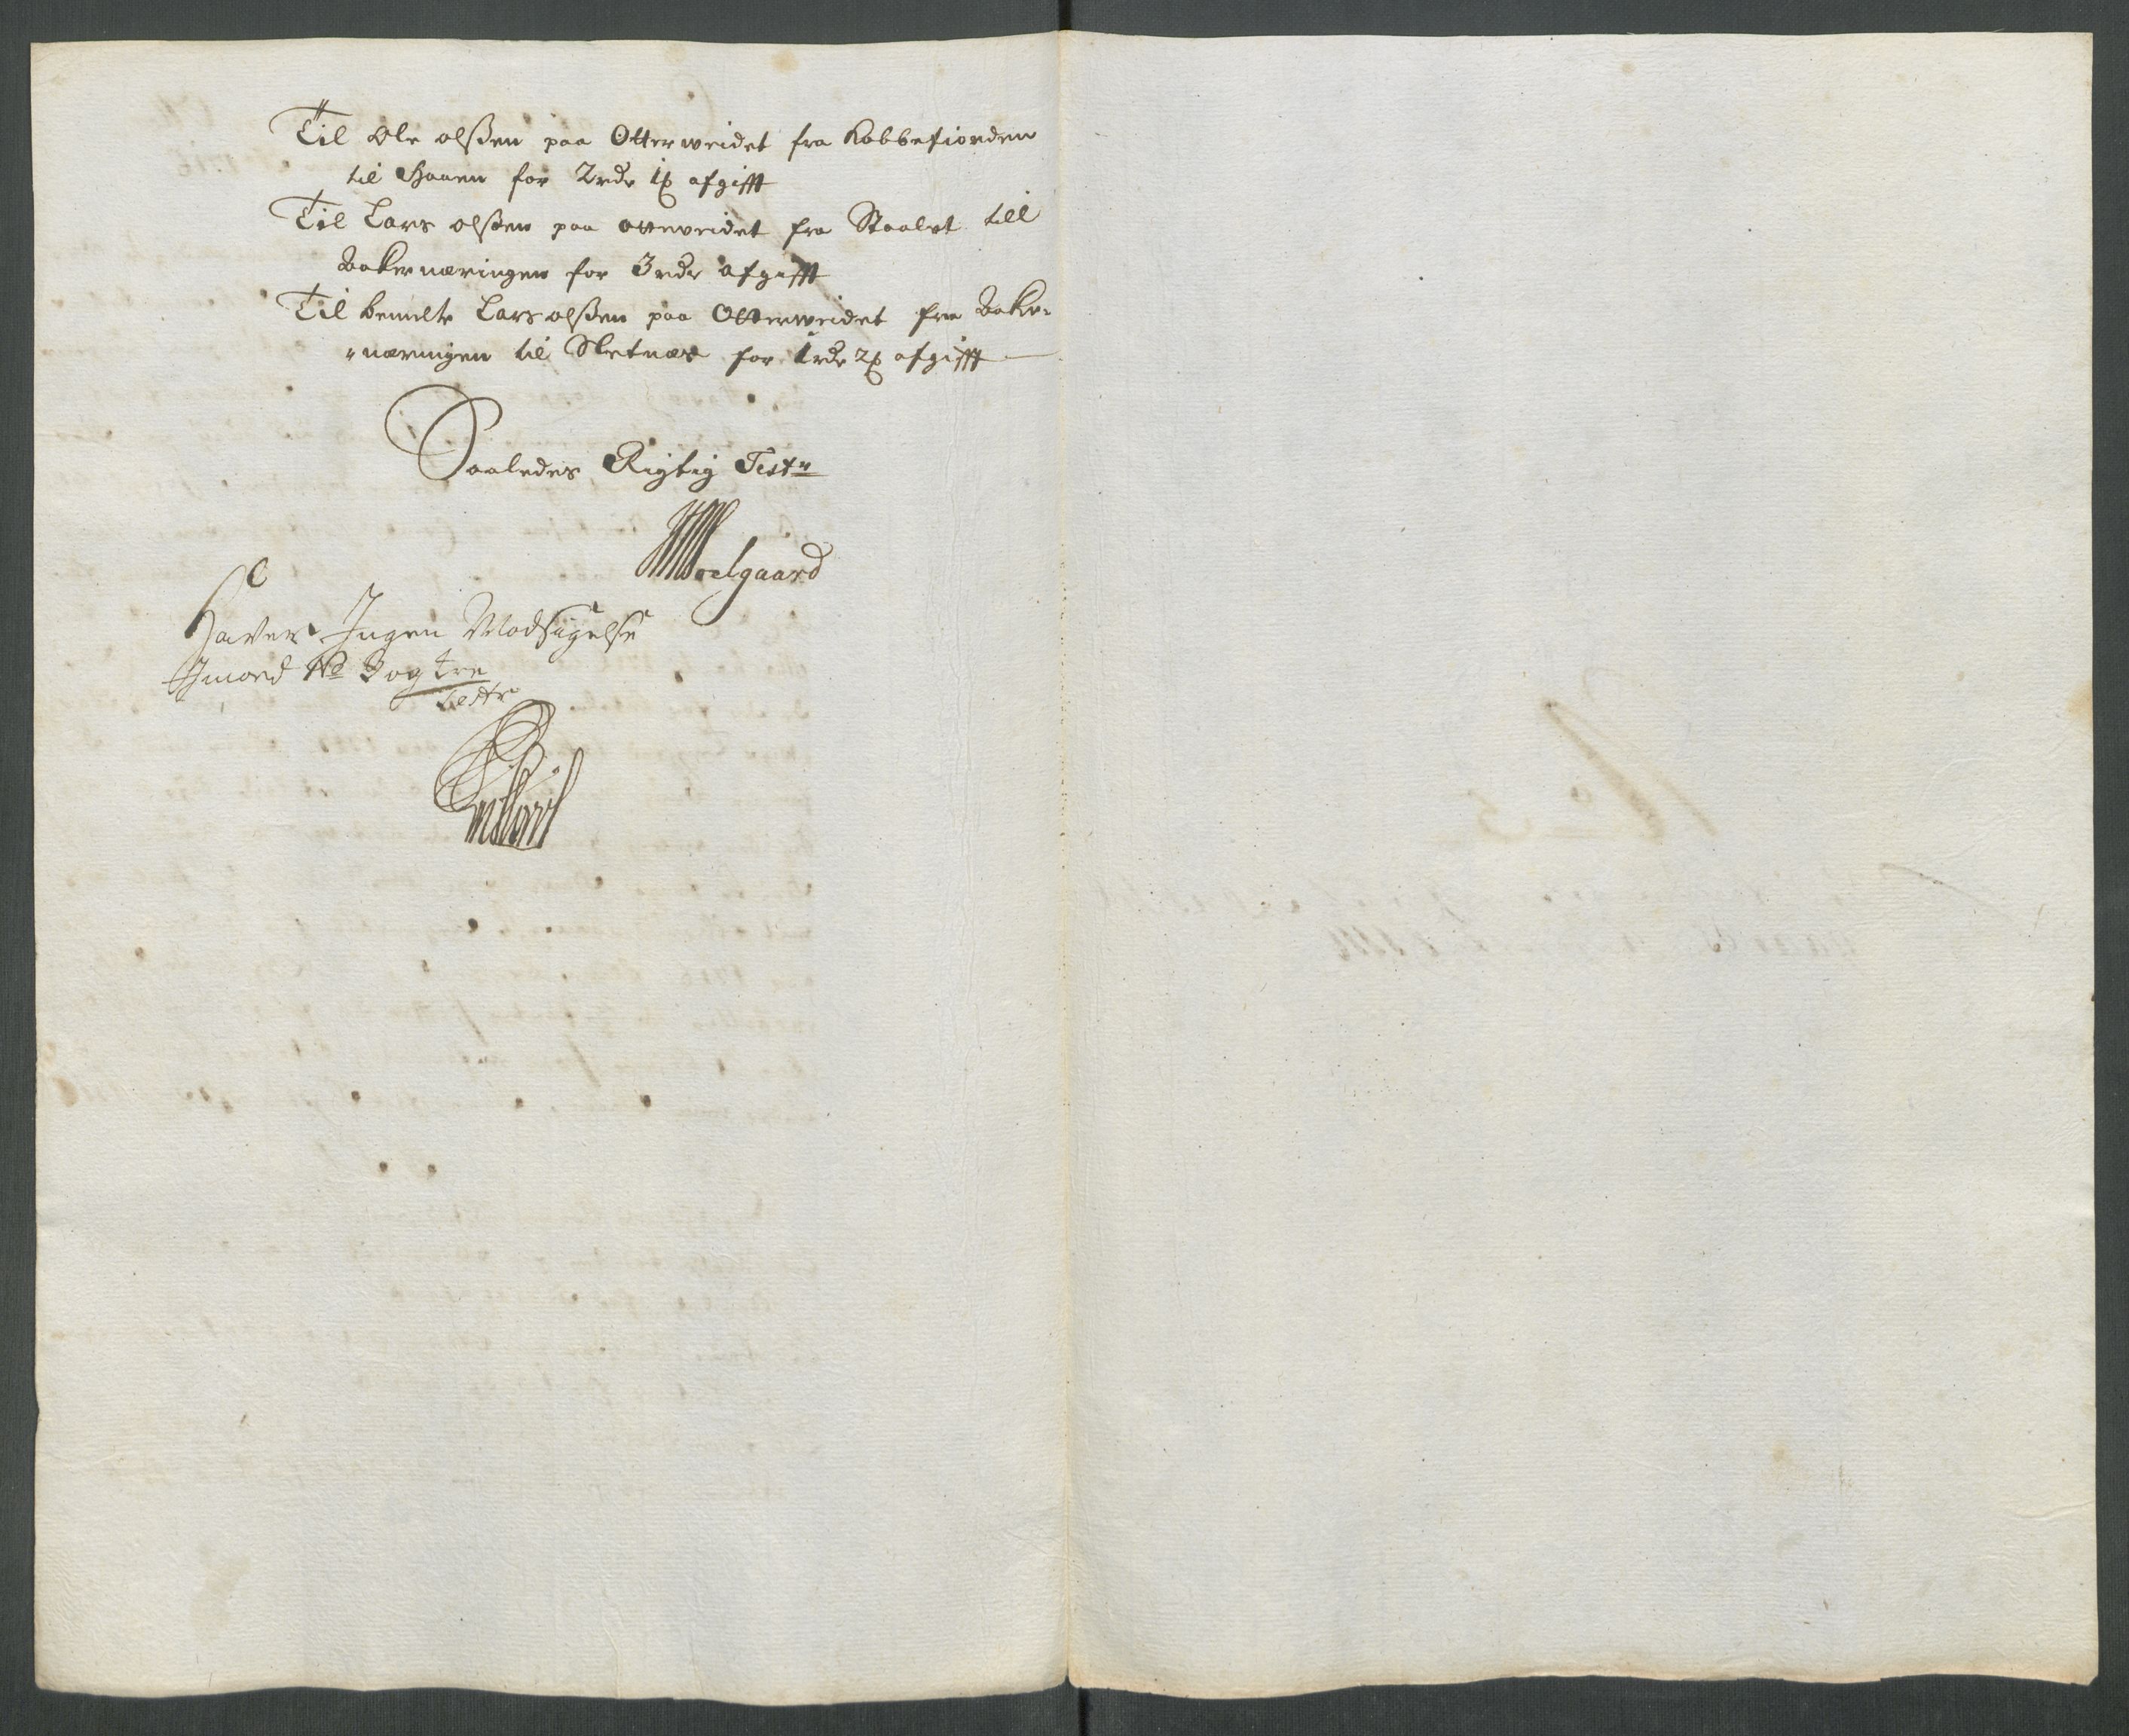 Til Ole olßen paa Otterweidet fra Kobbefiorden
til Haaen for 2 rdr 1 ȸ afgifft
Til Lars olßen paa otterveidet fra Staalet till
Bakernæringen for 3 rdr afgifft
Til bemelte Lars olßen paa Otterweidet fra Bake-
næringen til Sletnæs for 1 rdr 2 ȸ afgifft
Saaledes Rigtig Test.
Moelgaard
Haver Ingen Modsigelse
Imod No Bogtre
Testr